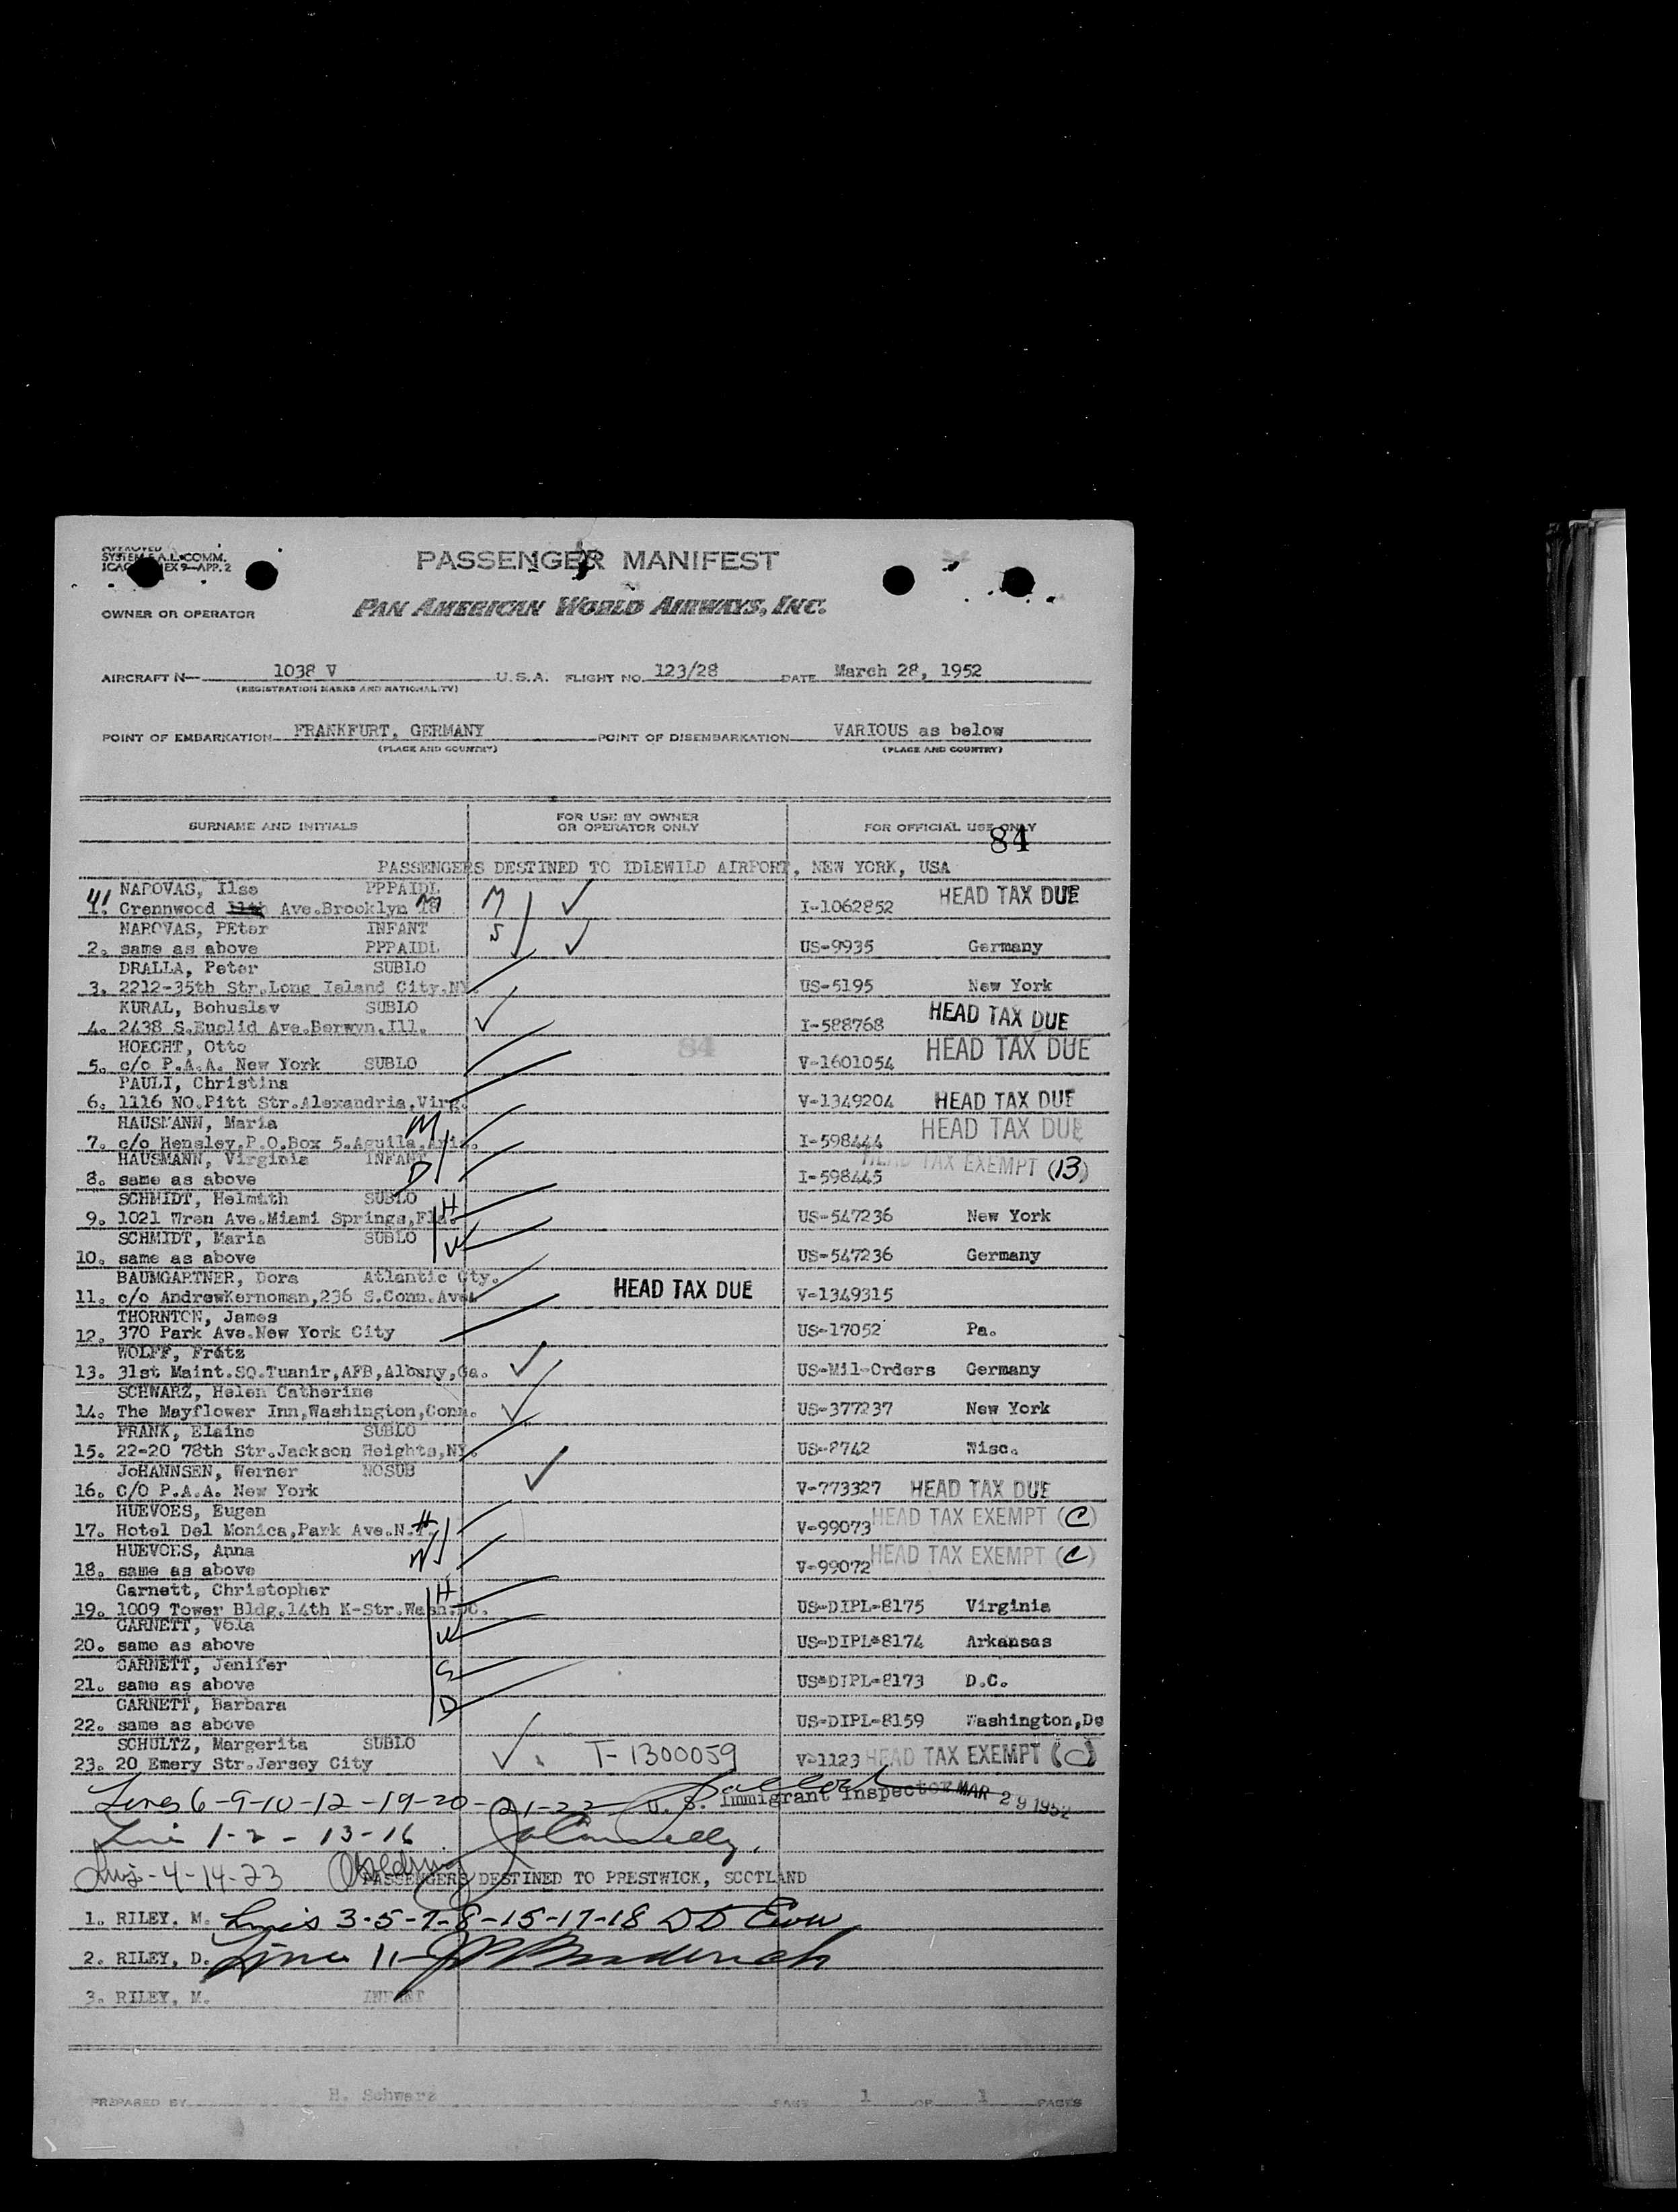 APPROVED
SYSTEM F.A.L. COMM.
ICAO EX 9—APP. 2
PASSENGER MANIFEST
OWNER OR OPERATOR PAN AMERICAN WORLD AIRWAYS, INC.
AIRCRAFT N— 1038 V U.S.A. FLIGHT NO. 123/28 DATE March 28, 1952
(REGISTRATION MARKS AND NATIONALITY)
POINT OF EMBARKATION FRANKFURT, GERMANY POINT OF DISEMBARKATION VARIOUS as below
(PLACE AND COUNTRY) (PLACE AND COUNTRY)
SURNAME AND INITIALS FOR USE BY OWNER OR OPERATOR ONLY FOR OFFICIAL USE ONLY
84
PASSENGERS DESTINED TO IDLEWILD AIRPORT, NEW YORK, USA
NAROVAS, Ilse PPPAIDL
41 1. Grennwood 11th Ave.Brooklyn 18 M M I-1062852 HEAD TAX DUE
NAROVAS, PEter INFANT
2. same as above PPPAIDL S US-9935 Germany
DRALLA, Peter SUBLO
3. 2212-35th Str.Long Island City.NY. US-5195 New York
KURAL, Bohuslav SUBLO
4. 2438 S.Euclid Ave.Berwyn.Ill. I-588768 HEAD TAX DUE
HOECHT, Otto
5. c/o P.A.A. New York SUBLO 84 V-1601054 HEAD TAX DUE
PAULI, Christina
6. 1116 NO.Pitt Str.Alexandria,Virg. V-1349204 HEAD TAX DUE
HAUSMANN, Maria
7. c/o Hensley,P.O.Box 5.Aguila,Ariz. M I-598444 HEAD TAX DUE
HAUSMANN, Virginia INFANT
8. same as above D I-598445 HEAD TAX EXEMPT (13)
SCHMIDT, Helmith SUBLO
9. 1021 Wren Ave.Miami Springs,Fla. H US-547236 New York
SCHMIDT, Maria SUBLO
10. same as above W US-547236 Germany
BAUMGARTNER, Dora Atlantic Cty.
11. c/o AndrewKernoman,236 S.Conn.Ave. HEAD TAX DUE V-1349315
THORNTON, James
12. 370 Park Ave.New York City US-17052 Pa.
WOLFF, Fratz
13. 31st Maint.SQ.Tuanir,AFB,Albany,Ga. US-Mil-Orders Germany
SCHWARZ, Helen Catherine
14. The Mayflower Inn,Washington,Conn. US-377237 New York
FRANK, Elaine SUBLO
15. 22-20 78th Str.Jackson Heights,NY. US-8742 Wisc.
JoHANNSEN, Werner NOSUB
16. C/O P.A.A. New York V-773327 HEAD TAX DUE
HUEVOES, Eugen
17. Hotel Del Monica,Park Ave.N.Y. H V-99073 HEAD TAX EXEMPT (C)
HUEVOES, Anna
18. same as above W V-99072 HEAD TAX EXEMPT (C)
Garnett, Christopher
19. 1009 Tower Bldg.14th K-Str.Wash.DC. H US-DIPL-8175 Virginia
GARNETT, Vola
20. same as above W US-DIPL-8174 Arkansas
GARNETT, Jenifer
21. same as above S US-DIPL-8173 D.C.
GARNETT, Barbara
22. same as above D US-DIPL-8159 Washington,Dc
SCHULTZ, Margerita SUBLO
23. 20 Emery Str.Jersey City T-1300059 V-1123 HEAD TAX EXEMPT (C)
Lines 6-9-10-12-19-20-21-22 U. S. Immigrant Inspector MAR 29 1952
Line 1-2-13-16
Lines-4-14-23
PASSENGERS DESTINED TO PRESTWICK, SCOTLAND
1. RILEY, M. Lines 3-5-7-8-15-17-18
2. RILEY, D. Line 11
3. RILEY, M. INFANT
PREPARED BY H. Schwarz PAGE 1 OF 1 PAGES